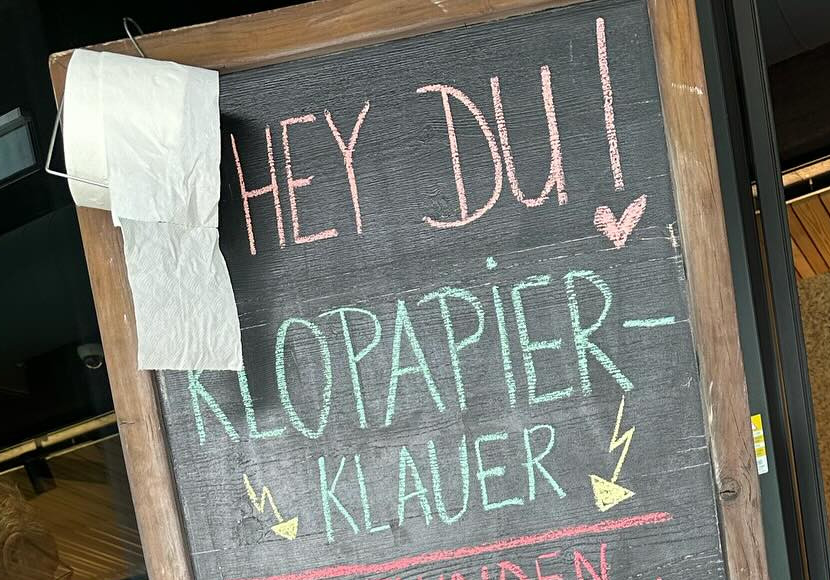 HEY DU!
KLOPAPIER-
KLAUER